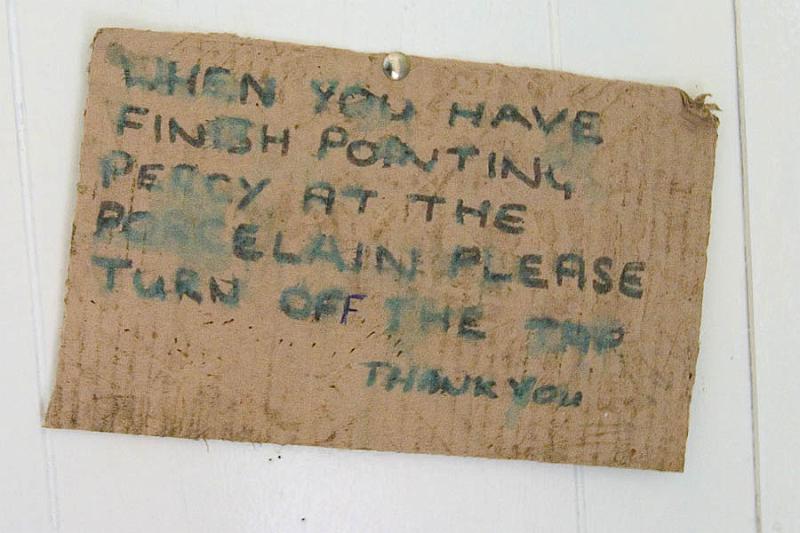 WHEN YOU HAVE
FINISH POINTING
PERCY AT THE
PORCELAIN PLEASE
TURN OFF THE TAP
THANK YOU